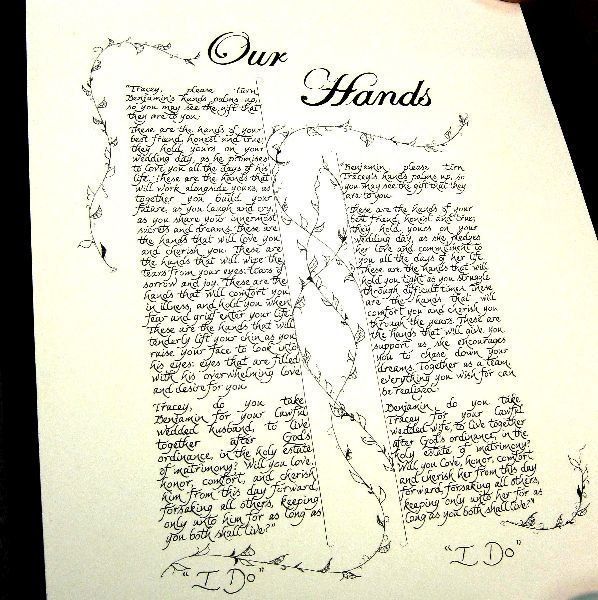 Our
Hands
Tracey, please turn
Benjamin's hands palms up,
so you may see the gift that
they are to you.
These are the hands of your
best friend, honest and true;
they hold yours on your
wedding day, as he promises
to love you all the days of his
life. These are the hands that
will work alongside yours, as
together you build your
future, as you laugh and cry,
as you share your innermost
secrets and dreams. These are
the hands that will love you
and cherish you. These are
the hands that will wipe the
tears from your eyes: tears of
sorrow and joy. These are the
hands that will comfort you
in illness, and hold you when
fear and grief enter your life.
These are the hands that will
tenderly lift your chin as you
raise your face to look into
his eyes: eyes that are filled
with his overwhelming love
and desire for you.
Tracey, do you take
Benjamin for your lawful
wedded husband, to live
together after God's
ordinance, in the holy estate
of matrimony? Will you love,
honor, comfort, and cherish
him from this day forward,
forsaking all others, keeping
only unto him for as long as
you both shall live?"
"I Do"
Benjamin please turn
Tracey's hands palms up, so
you may see the gift that they
are to you.
These are the hands of your
best friend, honest and true;
they hold yours on your
wedding day, as she pledges
her love and commitment to
you all the days of her life.
These are the hands that will
hold you tight as you struggle
through difficult times. These
are the hands that will
comfort you and cherish you
through the years. These are
the hands that will give you
support as she encourages
you to chase down your
dreams. Together as a team,
everything you wish for can
be realized.
Benjamin, do you take
Tracey for your lawful
wedded wife, to live together
after God's ordinance, in the
holy estate of matrimony?
Will you love, honor, comfort,
and cherish her from this day
forward, forsaking all others,
keeping only unto her for as
long as you both shall live?"
"I Do"